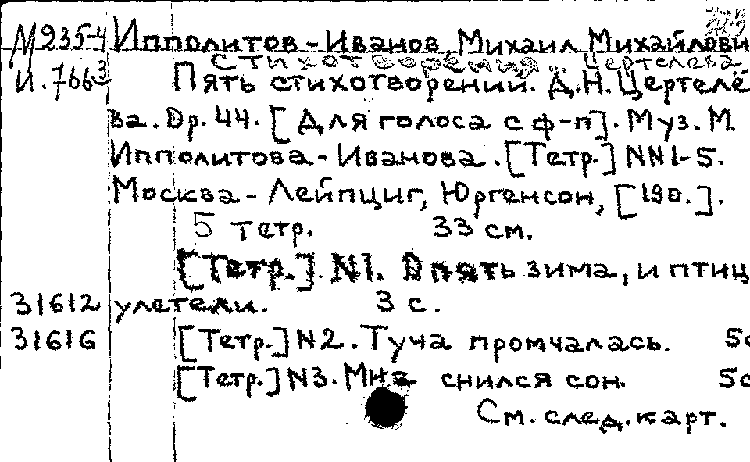 М935-4 Ипполитов-Иванов, Михаил Михайлови
Стихотворения Цертелева
И.7663 Пять стихотворений. Д.Н.Цертелё
ва. Op. 44. [Для голоса с ф-п]. Муз. М.
Ипполитова-Иванова. [Тетр.] NN1-5.
Москва-Лейпциг, Юргенсон, [190.].
5 тетр. 33 см.
[Тетр.] N1. Опять зима, и птиц
31612 улетели. 3 с.
31616 [Тетр.] N2. Туча промчалась. 5с
[Тетр.] N3. Мне снился сон. 5с
См. след. карт.